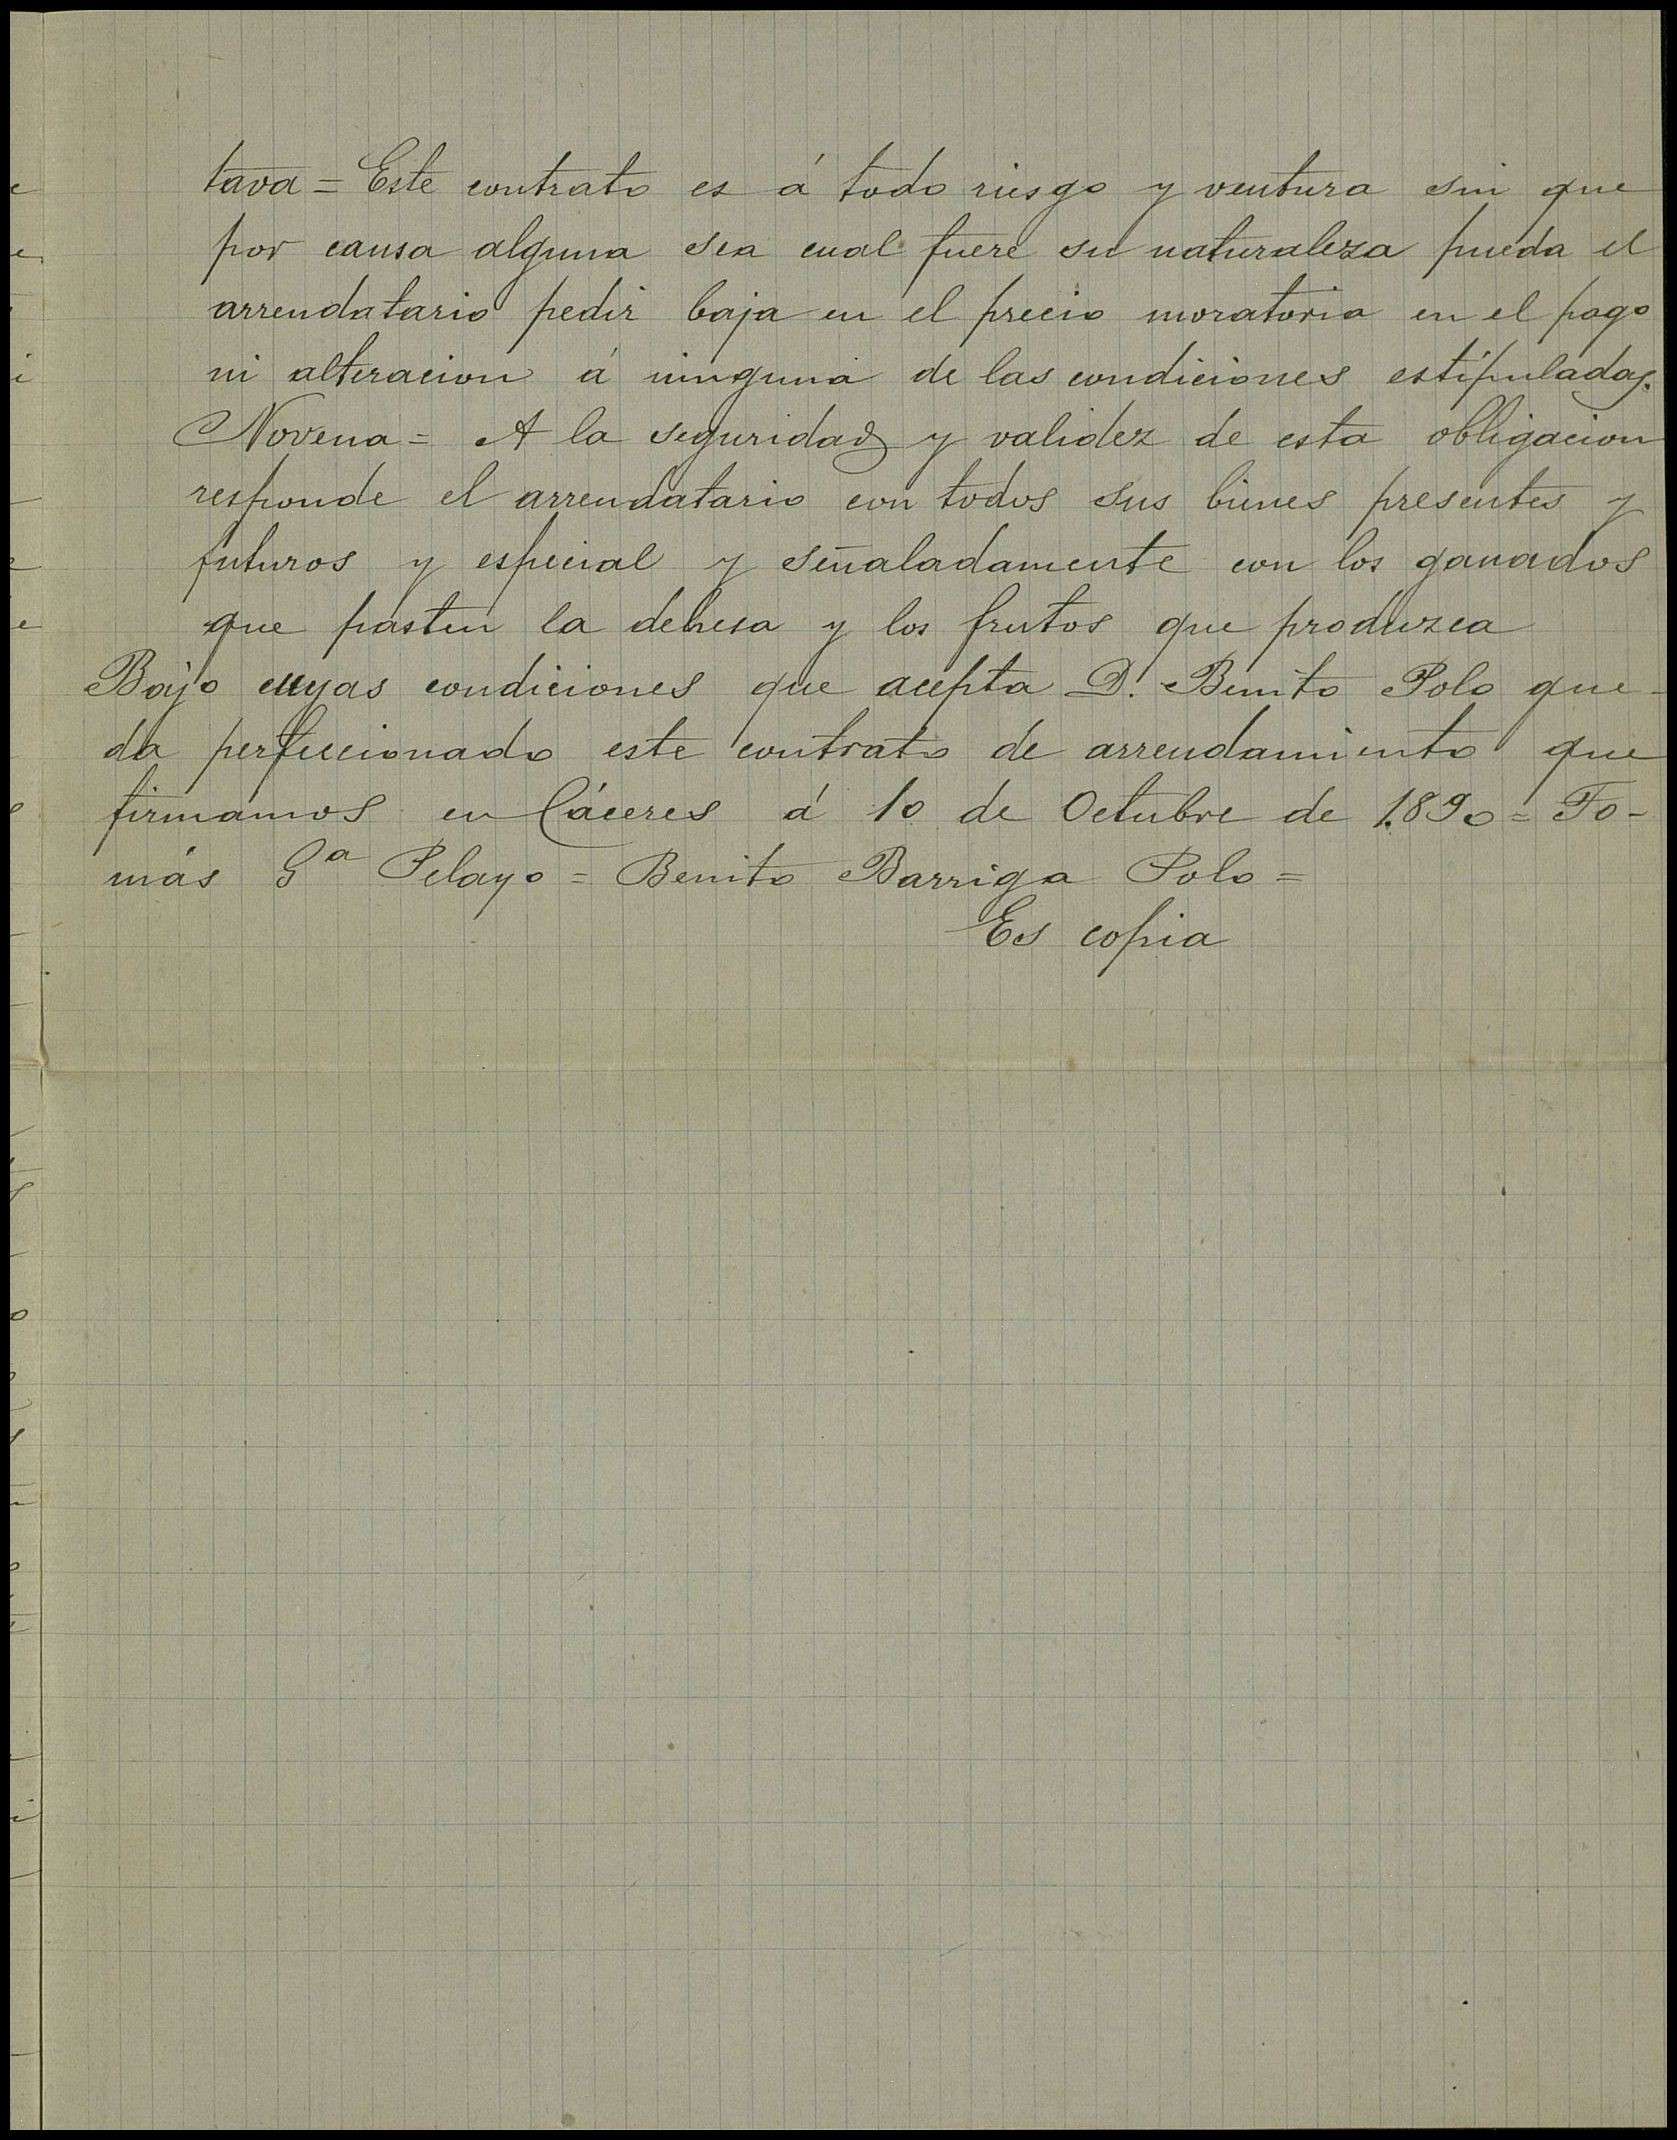 tava = Este contrato es á todo riesgo y ventura sin que
por causa alguna sea cual fuere su naturaleza pueda el
arrendatario pedir baja en el precio moratoria en el pago
ni alteracion á ninguna de las condiciones estipuladas.
Novena = A la seguridad y validez de esta obligacion
responde el arrendatario con todos sus bienes presentes y
futuros y especial y señaladamente con los ganados
que pasten la dehesa y los frutos que produzca
Bajo cuyas condiciones que acepta D. Benito Polo que-
da perfeccionado este contrato de arrendamiento que
firmamos en Cáceres á 10 de Octubre de 1.890 = To-
más Gª Pelayo = Benito Barriga Polo =
Es copia